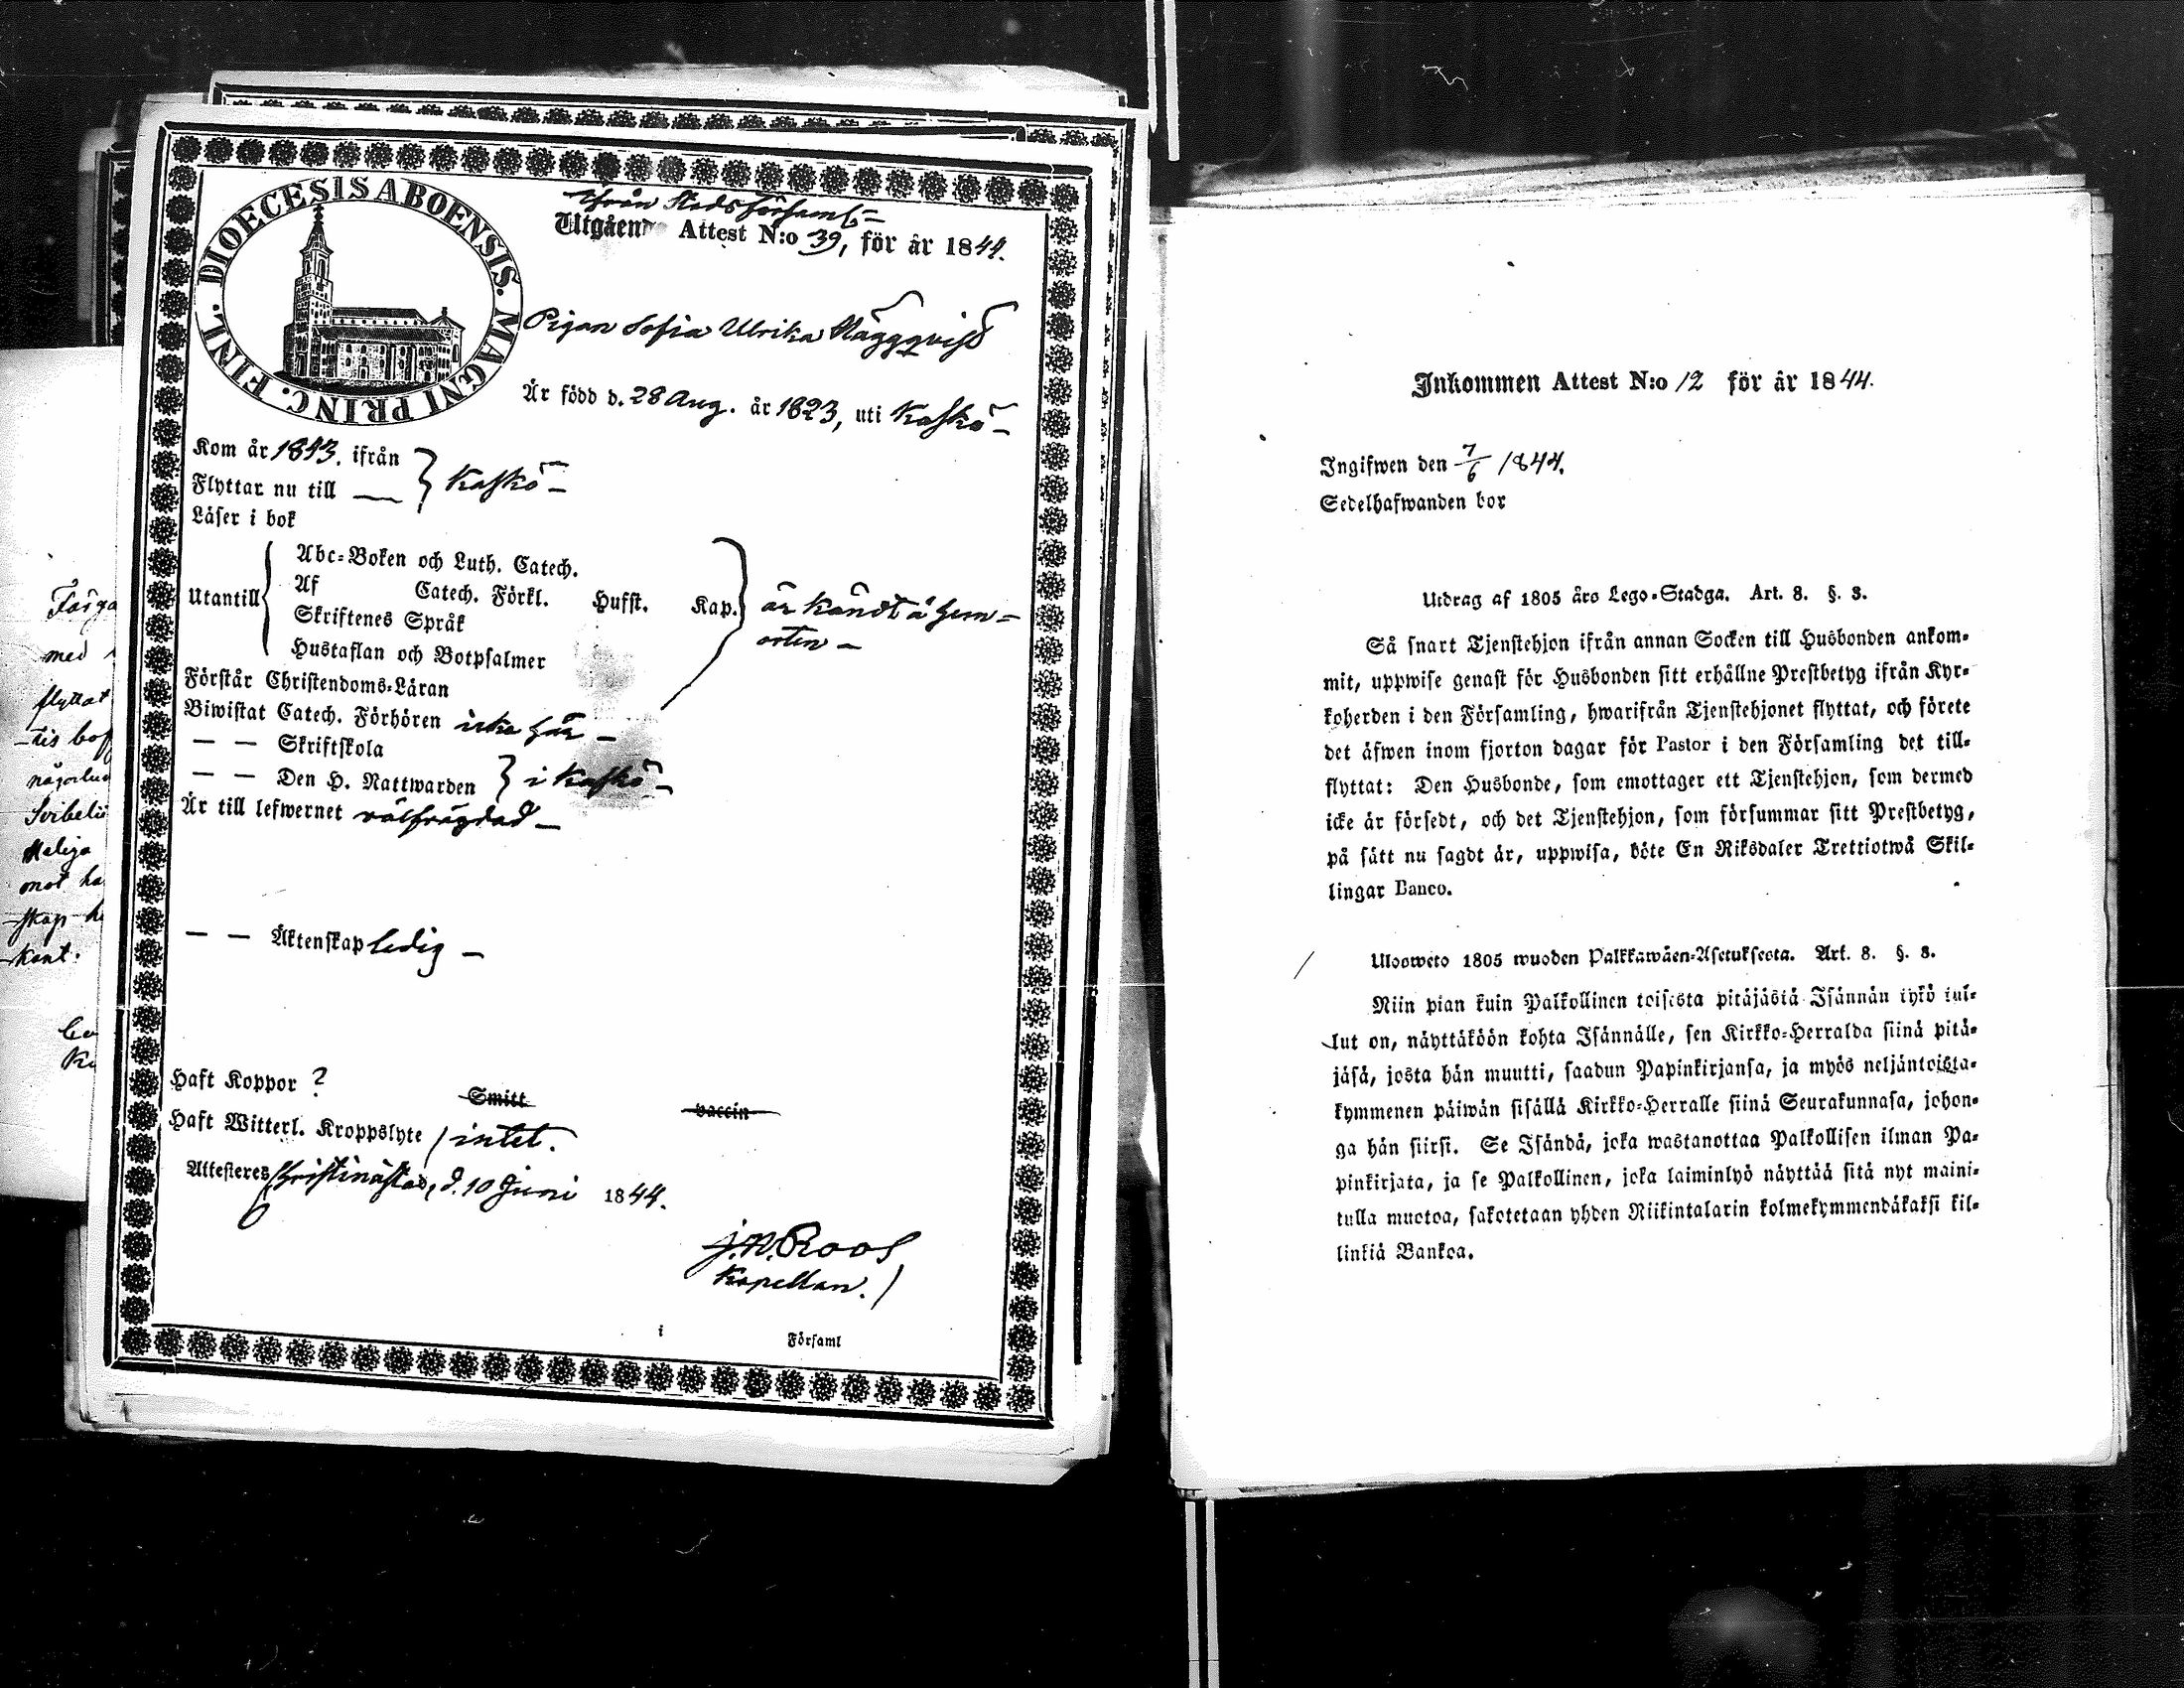 DIOECESIS ABOENSIS. MAGNI PRINC. FINL.
Ifrån Stadsförsaml.
Utgående Attest N:o 39, för år 1844.
Pigan Sofia Ulrika Häggqvist
Är född d. 28 Aug. år 1823, uti Kaskö
Kom år 1843. ifrån
Flyttar nu till — } Kaskö
Läser i bok
Utantill
Abc-Boken och Luth. Catech.
Af Catech. Förkl. Hufst. Kap.
Skriftenes Språk
Hustaflan och Botpsalmer
är kändt å hem-
orten
Förstår Christendoms-Läran
Biwistat Catech. Förhören icke här
— — Skriftskola
— — Den H. Nattwarden } i Kaskö
Är till lefwernet välfrägdad
— — Äktenskap ledig
Haft Koppor ? Smitt vaccin
Haft Witterl. Kroppslyte / intet.
Attesteres Christinæstad, d. 10 Juni 1844.
J. N. Roos
Kapellan.
i Församl
Farga
med
flyttat
-tis bof
någorlun
Svibelii
Heliga
mot ha
-skap h
-kant.
Inkommen Attest N:o 12 för år 1844.
Ingifwen den 7/6 1844.
Sedelhafwanden bor
Utdrag af 1805 års Lego-Stadga. Art. 8. §. 3.
Så snart Tjenstehjon ifrån annan Socken till Husbonden ankom-
mit, uppwise genast för Husbonden sitt erhållne Prestbetyg ifrån Kyr-
koherden i den Församling, hwarifrån Tjenstehjonet flyttat, och förete
det äfwen inom fjorton dagar för Pastor i den Församling det till-
flyttat: Den Husbonde, som emottager ett Tjenstehjon, som dermed
icke är försedt, och det Tjenstehjon, som försummar sitt Prestbetyg,
på sätt nu sagdt är, uppwisa, böte En Riksdaler Trettiotwå Skil-
lingar Banco.
Ulosweto 1805 wuoden Palkkawäen-Asetuksesta. Art. 8. §. 3.
Niin pian kuin Palkollinen toisesta pitäjästä Isännän tykö tul-
lut on, näyttäköön kohta Isännälle, sen Kirkko-Herralda siinä pitä-
jäsä, josta hän muutti, saadun Papinkirjansa, ja myös neljäntoista-
kymmenen päiwän sisällä Kirkko-Herralle siinä Seurakunnasa, johon-
ga hän siirsi. Se Isändä, joka wastanottaa Palkollisen ilman Pa-
pinkirjata, ja se Palkollinen, joka laiminlyö näyttää sitä nyt maini-
tulla muotoa, sakotetaan yhden Riikintalarin kolmekymmendäkaksi kil-
linkiä Bankoa.